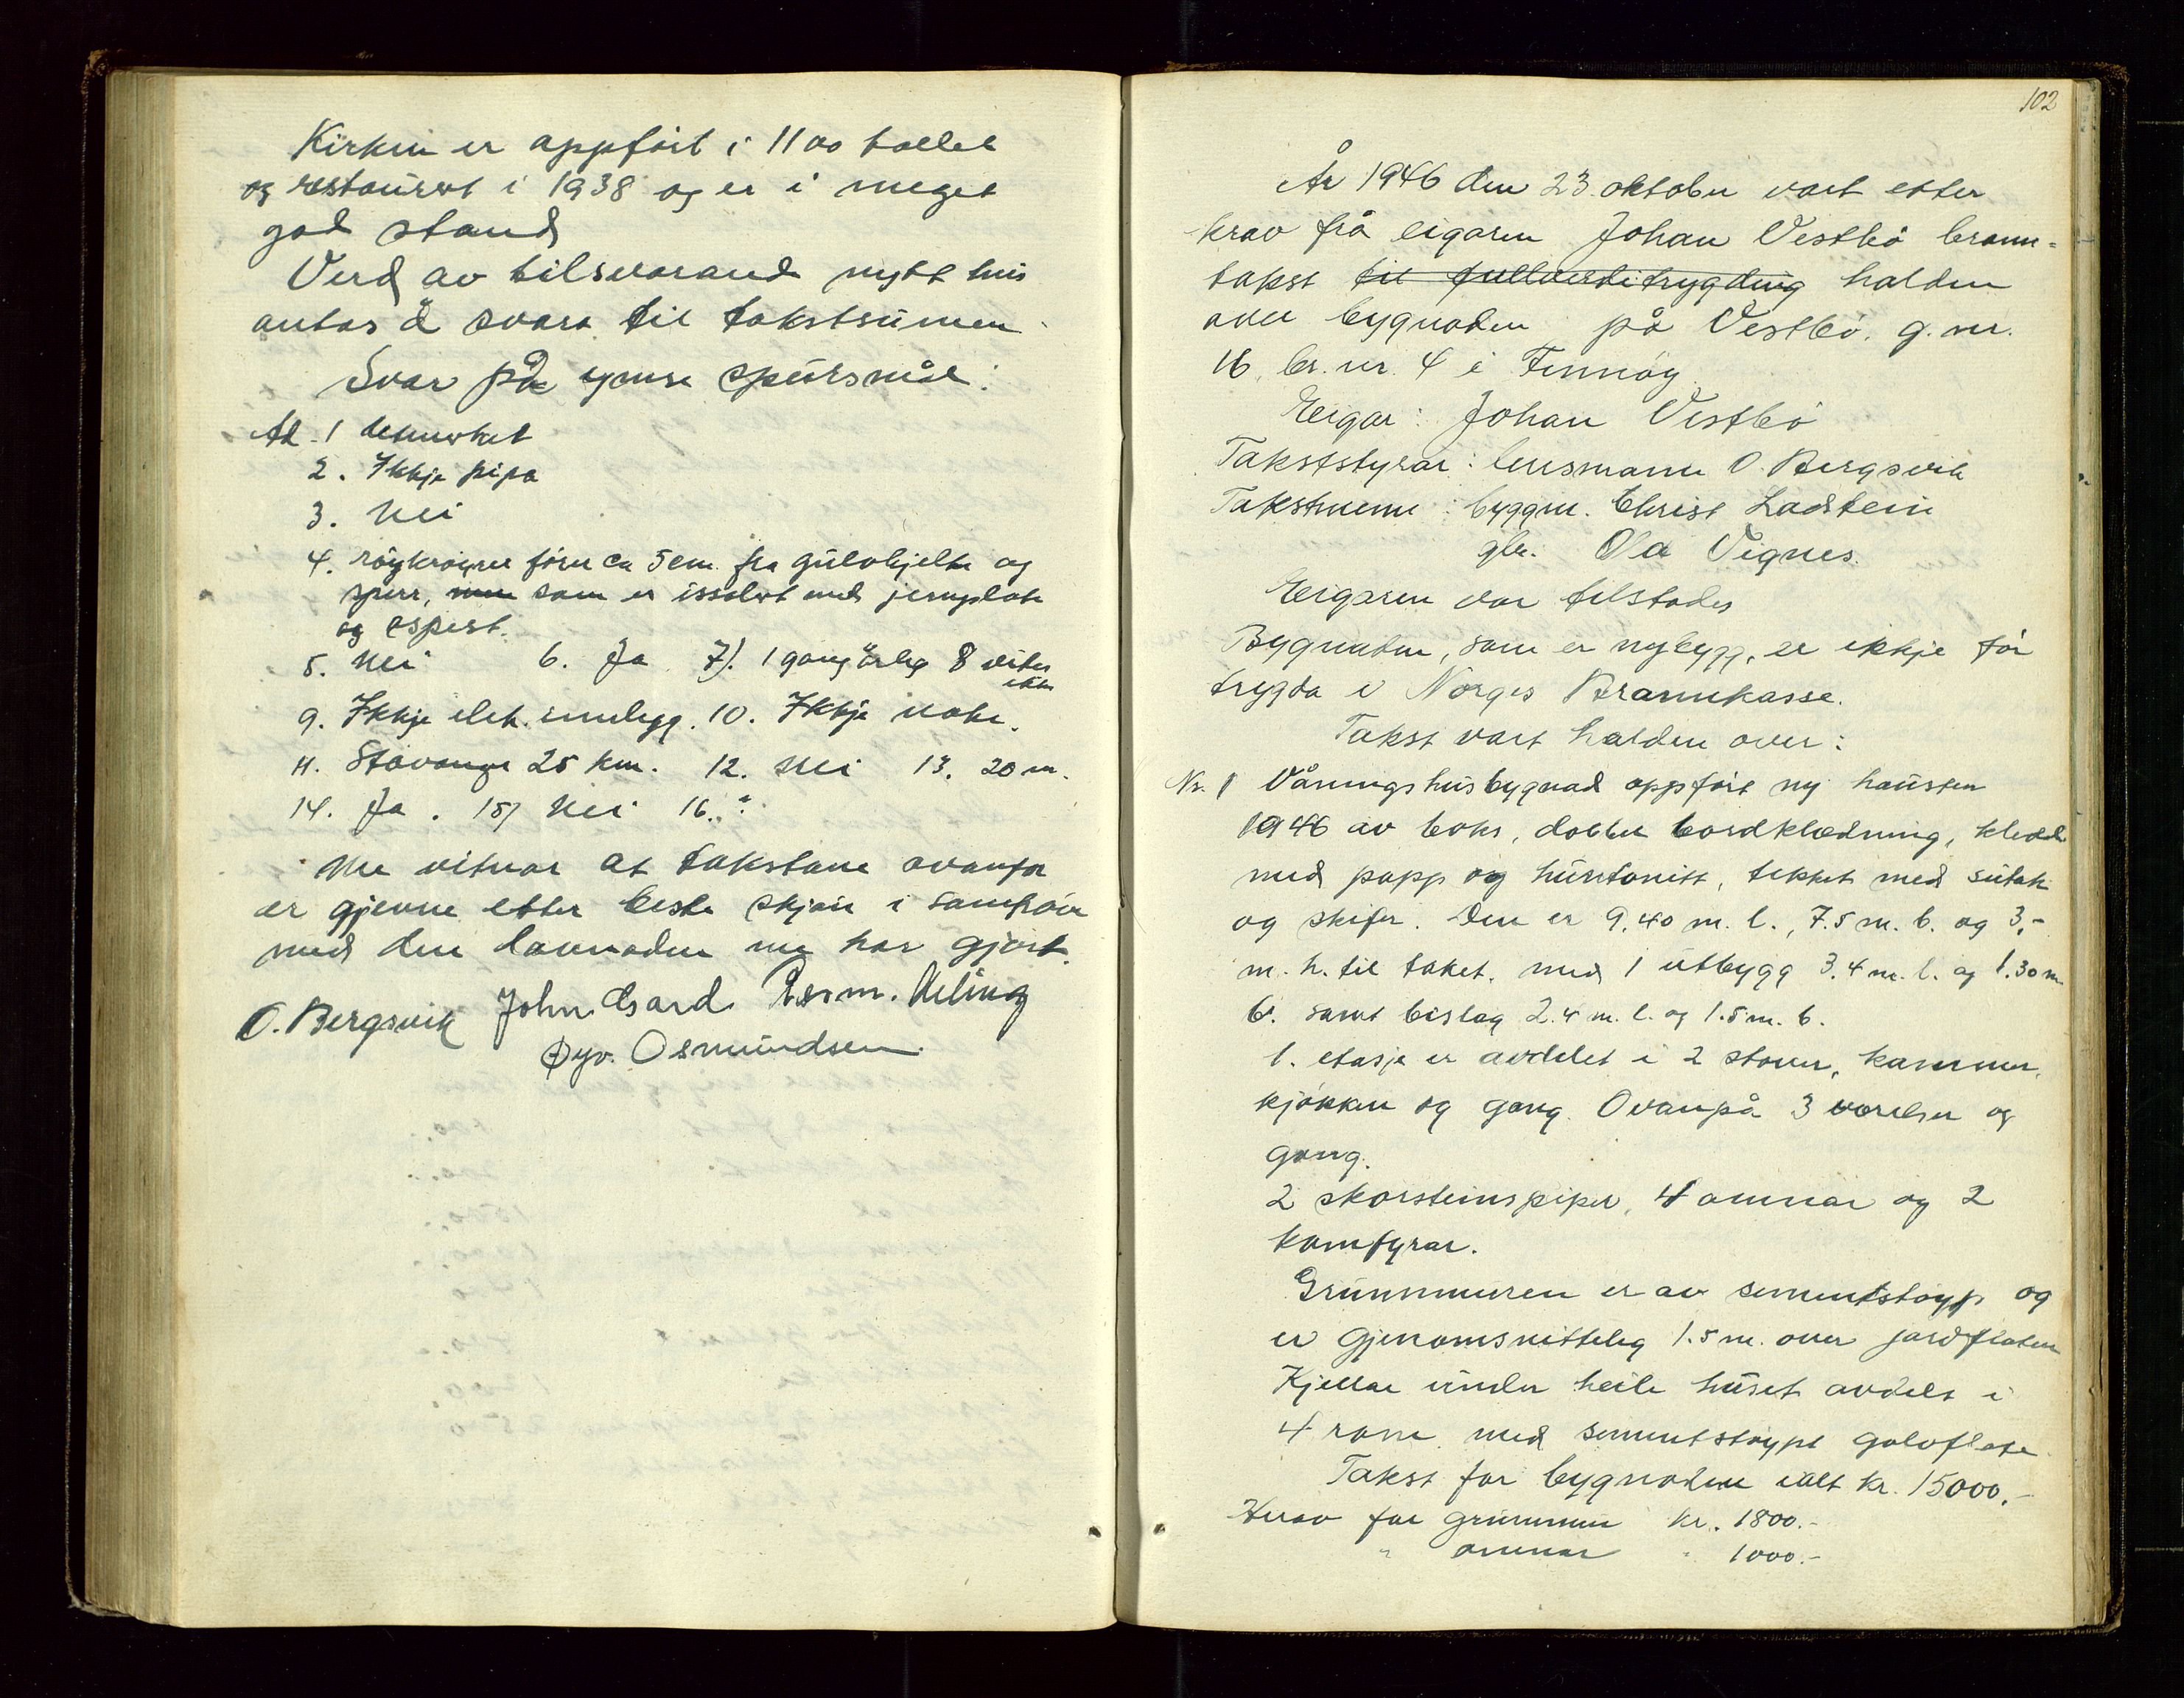 Kirken er oppfört i 1100 tallet
og restaurert i 1938 og er i meget
god stand
Verd av tilsvarand nytt hus
antas å svara til takstsumen
Svar på ymse spörsmål:
Ad. 1 besvart
2. Ikkje pipa
3. Nei
4. röykröyret förer ca 5 cm. fra gulvbjelke og
sperr, som er issolert med jernplate
og aspest.
5. Nei 6. Ja 7). 1 gang årleg 8 vites
ikke
9. Ikkje elek. innlegg. 10. Ikkje
11. Stavanger 25 km. 12. Nei 13. 20 m.
14. Ja. 15) Nei 16. "
Me vitnar at takstane ovanfor
er gjevne etter beste skjön i samhöve
med den lovnaden me har gjort.
O. Bergsvik John Gard Rasm. Meling
Öyv. Osmundsen.
102
År 1946 den 23. oktober vart etter
krav frå eigaren Johan Vestbö brann-
takst til fullverditrygding halden
over bygnaden på Vestbö, g. nr.
16, br. nr. 4 i Finnöy
Eigar: Johan Vestbö
Takststyrar: lensmann O. Bergsvik
Takstmenn: byggm. Christ Ladstein
gbr. Ola Vignes.
Eigaren var tilstades
Bygnaden, som er nybygg, er ikkje för
trygda i Norges Brannkasse.
Takst vart halden over:
Nr. 1 Våningshusbygnad oppfört ny hausten
1946 av boks, dobbel bordklædning, kledd
med papp og huntonitt, tekket med sutak
og skifer. Den er 9,40 m. l., 7.5 m. b. og 3,-
m. h. til taket, med 1 utbygg 3.4 m. l. og 1.30 m
b. samt bislag 2.4 m. l. og 1.5 m. b.
1. etasje er avdelet i 2 stover, kammer,
kjökken og gang. Ovanpå 3 værelser og
gang.
2 skorsteinspiper, 4 omnar og 2
komfyrar.
Grunnmuren er av sementstöyp og
er gjenomsnitteleg 1.5 m. over jordflaten
Kjellar under heile huset avdelt i
4 rom med sementstöypt golvflate
Takst for bygnaden ialt kr. 15000.-
Herav for grunnmur kr. 1800.-
" omnar " 1000.-